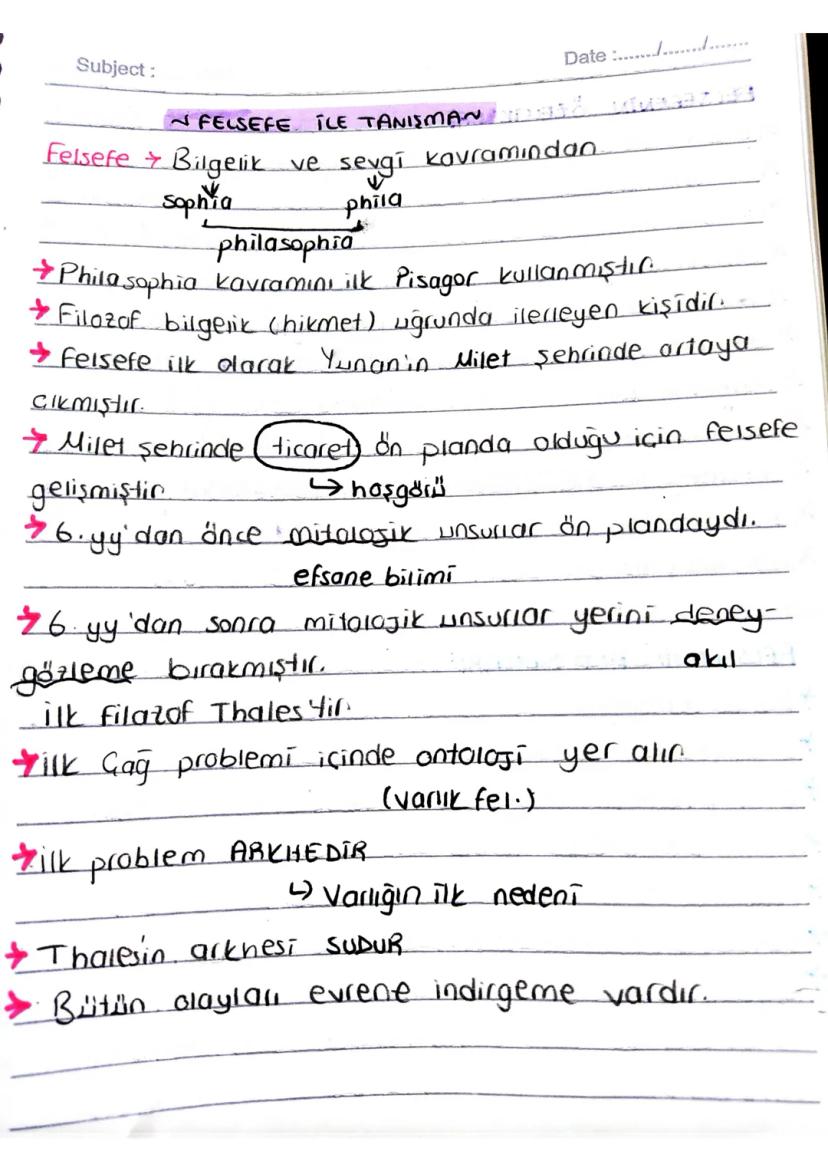 Subject :
Date :......./......./.......
~ FELSEFE İLE TANIŞMA ~
Felsefe → Bilgelik ve sevgi kavramından
sophia phila
philasophia
→ Philasophia kavramını ilk Pisagor kullanmıştır.
→ Filozof bilgelik (hikmet) uğrunda ilerleyen kişidir.
→ Felsefe ilk olarak Yunan'ın Milet şehrinde ortaya
çıkmıştır.
→ Milet şehrinde ticaret ön planda olduğu için felsefe
gelişmiştir ↳ hoşgörü
→ 6.yy'dan önce mitolojik unsurlar ön plandaydı.
efsane bilimi
→ 6.yy'dan sonra mitolojik unsurlar yerini deney-
gözleme bırakmıştır. akıl
İlk filozof Thales'tir.
→ ilk Çağ problemi içinde ontoloji yer alır
(varlık fel.)
→ ilk problem ARKHEDİR
↳ Varlığın ilk nedeni
→ Thales'in arkhesi SUDUR
→ Bütün olayları evrene indirgeme vardır.